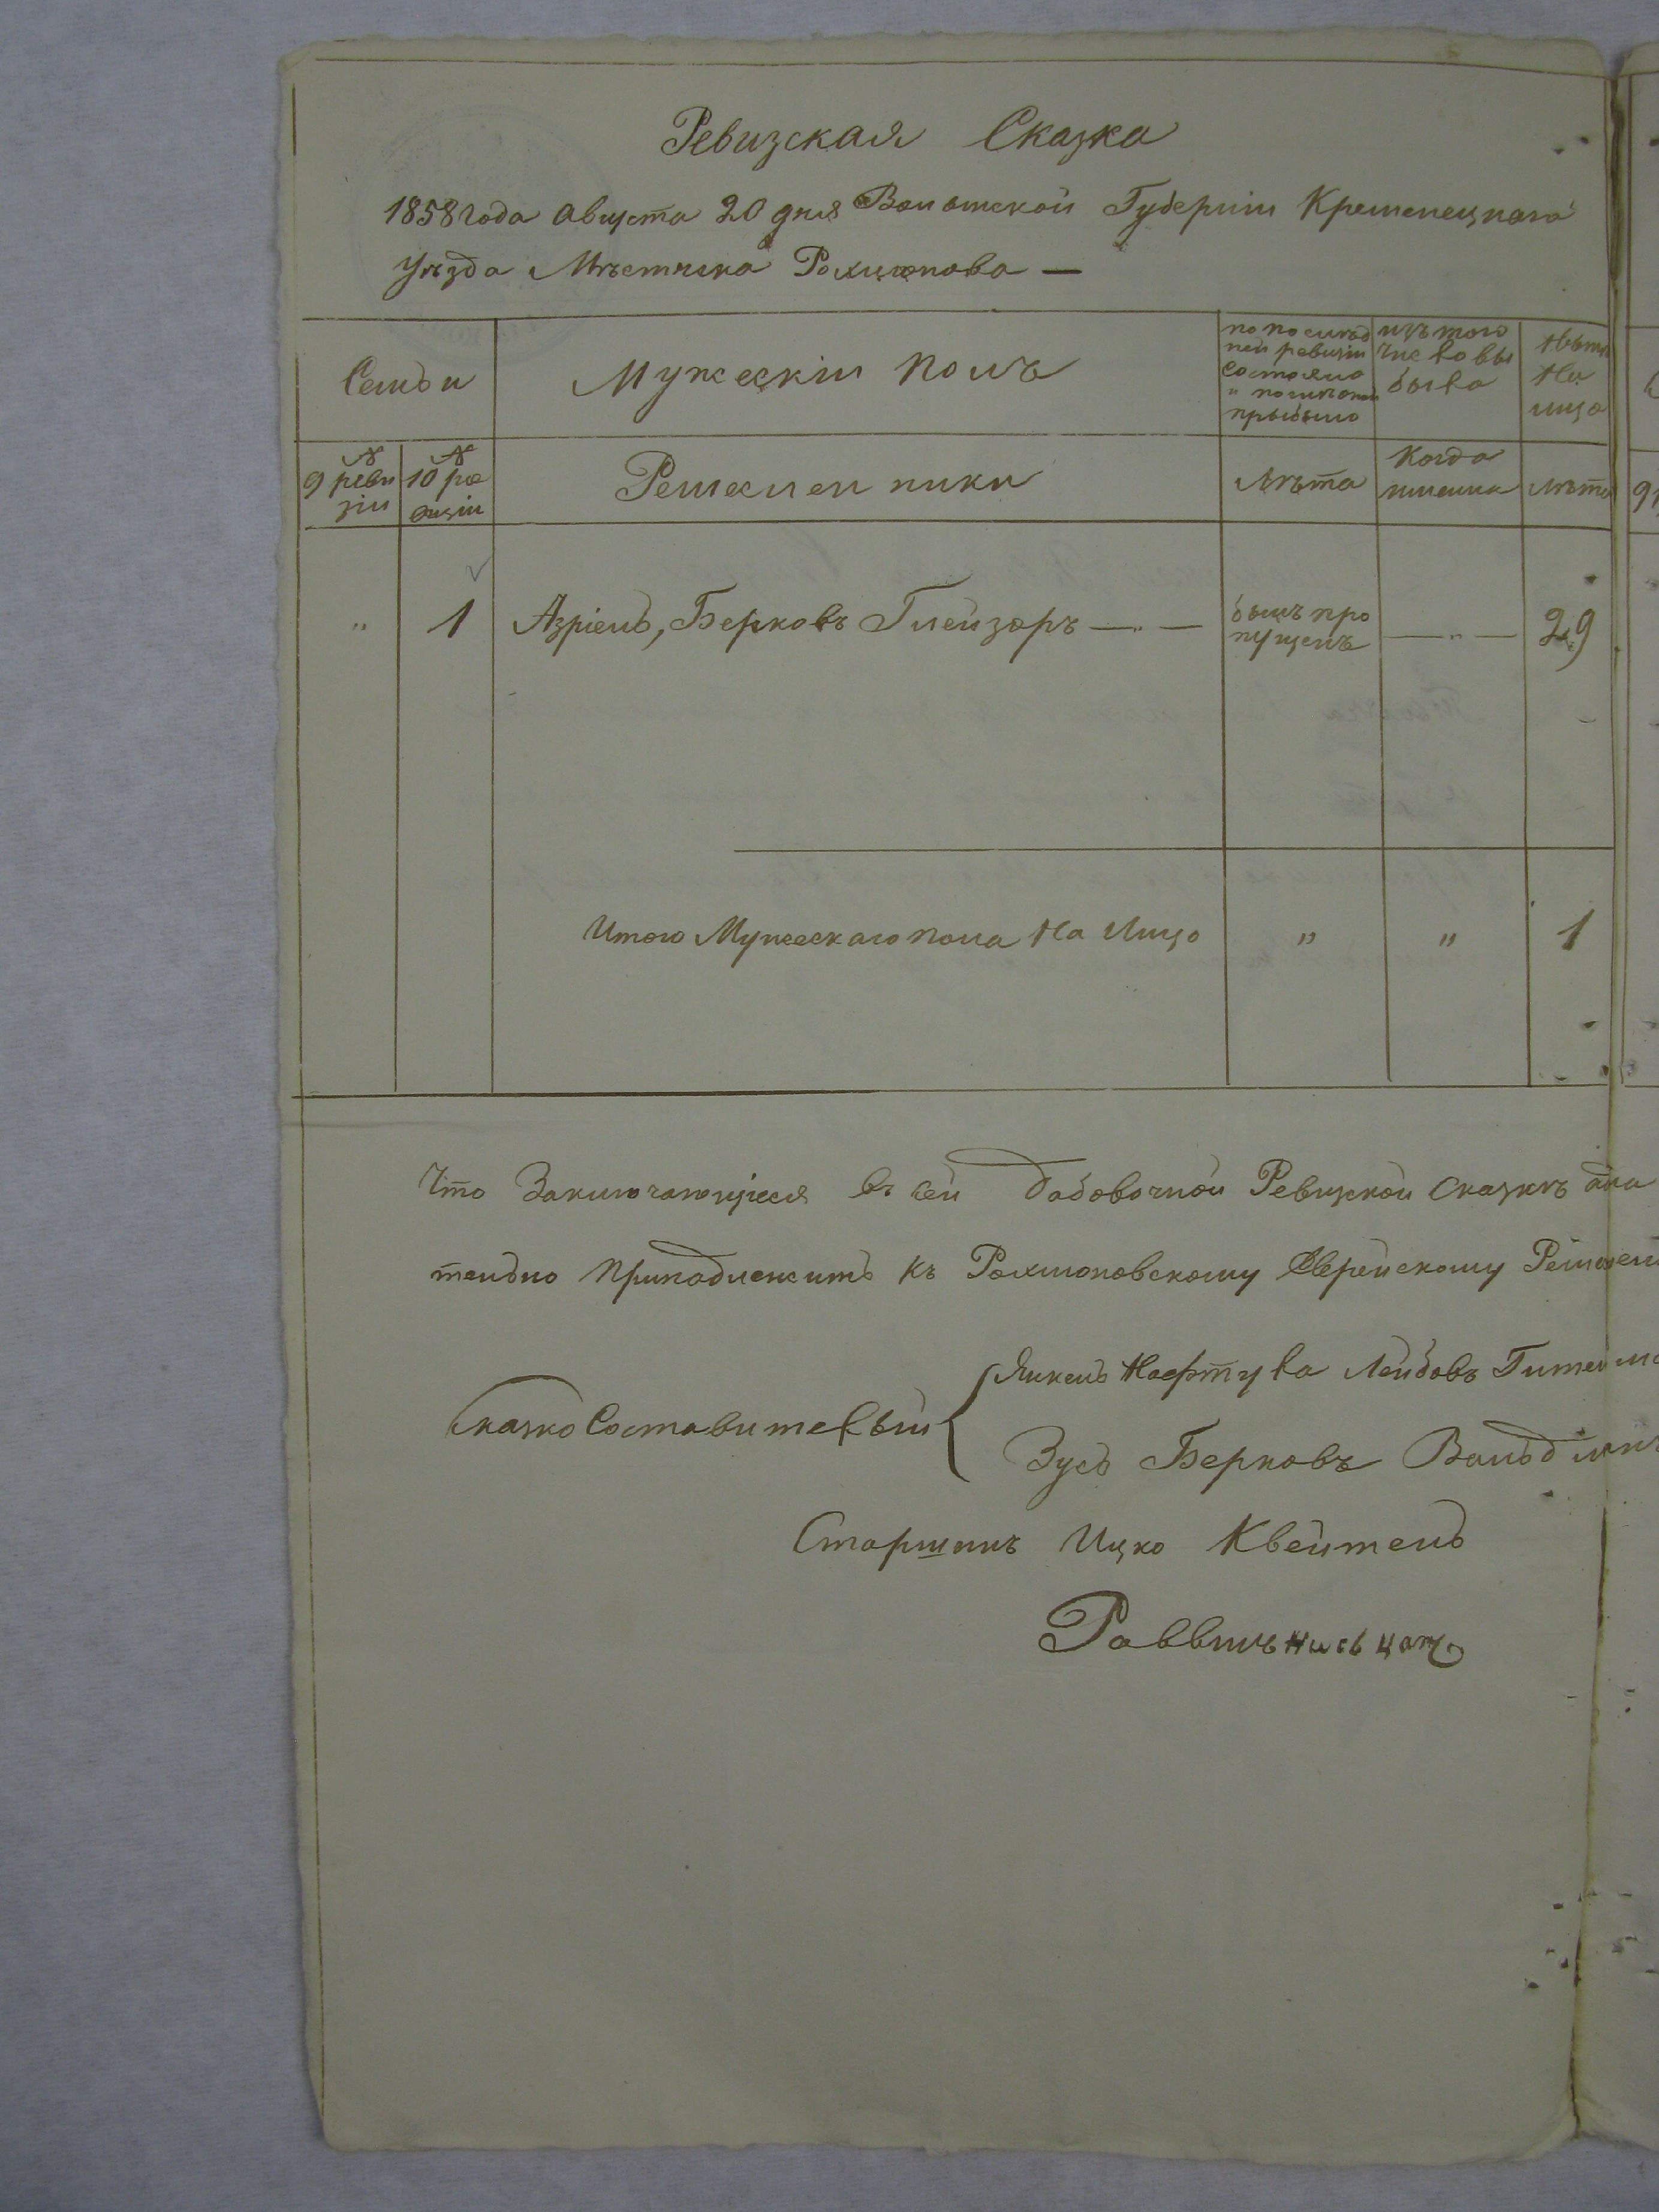 Ревизская Сказка
1858 года августа 20 дня Волынской Губернии Кременецкаго
уѣзда Мѣстечка Рохманова —
Семьи
Мужескій полъ
по послѣд
ней ревизіи
состояло
и послѣ оной
прибыло
изъ того
числа вы
было
Нынѣ
На
лицо
№
9 реви
зіи
№
10 ре
визіи
Ремесленники
Лѣта
Когда
именно
лѣта
" 1 Азріель, Берковъ Глейзеръ —"— былъ про
пущенъ —"— 29
Итого Мужескаго пола На Лицо " " 1
Что Заключающіеся въ сей добовочной Ревизской Сказкѣ
тельно принадлежитъ къ Рохмоновскому Еврейскому
Сказко Составители
Янкель Нафтула Лейбовъ
Зусь Берковъ
Старшина Ицко Квейтель
Раввинъ